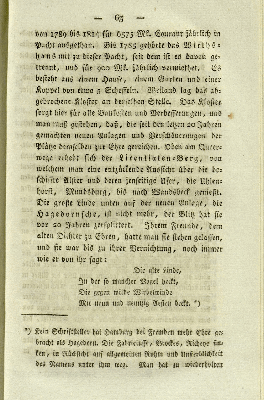 — 65 —
von 1789 bis 1814 für 6575 Mk. Courant jährlich in
Pacht ausgethan. Bis 1785 gehörte das Wirths-
haus mit zu dieser Pacht, seit dem ist es davon ge-
trennt, und für 900 Mk. jährlich vermiethet. Es
besteht aus einem Hause, einem Garten und einer
Koppel von etwa 3 Scheffeln. Weiland lag das ab-
gebrochene Kloster an derselben Stelle. Das Kloster
sorgt hier für alle Baulichkeiten und Verbesserungen, und
man muß gestehen, daß, die seit den letzen 20 Jahren
gemachten neuen Anlagen und Verschönerungen der
Plätze demselben zur Ehre gereichen. Oben am Quer-
wege erhebt sich der Licentiaten-Berg, von
welchem man eine entzückende Aussicht über die be-
schiffte Alster und deren jenseitige Ufer, die Uhlen-
horst, Mundsburg, bis nach Wandsbeck genießt.
Die große Linde unten auf der neuen Anlage, die
Hagedornsche, ist nicht mehr, der Blitz hat sie
vor 20 Jahren zersplittert. Ihrem Freunde, dem
alten Dichter zu Ehren, hatte man sie stehen gelassen,
und sie war bis zu ihrer Vernichtung, noch immer
wie er von ihr sagt:
Die alte Linde,
In der so mancher Vogel heckt,
Die gegen wilde Wirbelwinde
Mit neun und neunzig Aesten deckt. *)
*) Kein Schriftsteller hat Hamburg bei Fremden mehr Ehre ge-
bracht als Hagedorn. Die Fabricius, Brockes, Richeys sin-
ken, in Rücksicht auf allgemeinen Ruhm und Unsterblichkeit
des Namens unter ihm weg. Man hat zu wiederholten